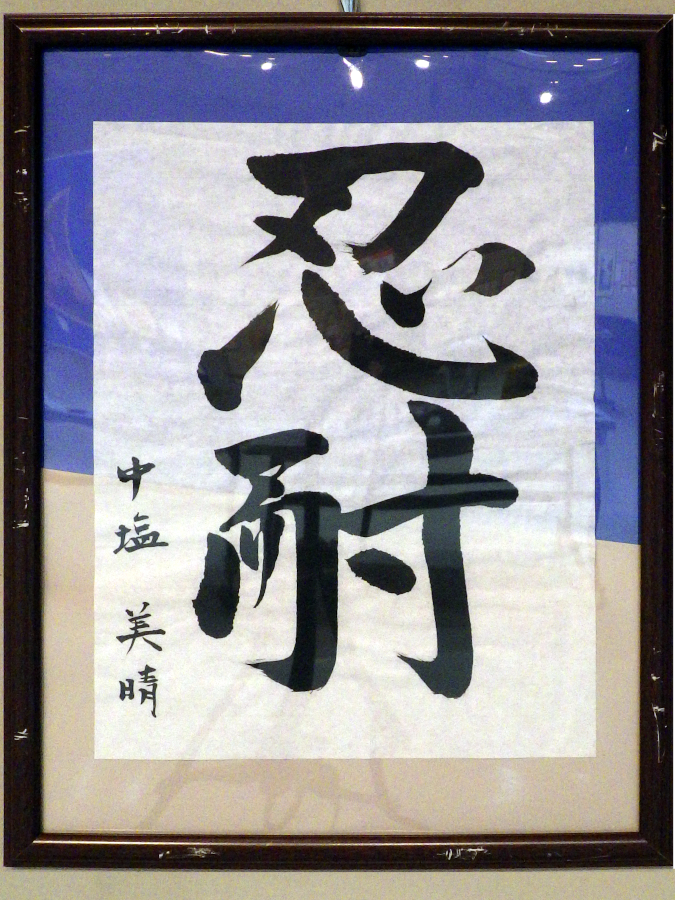 忍耐
中塩 美晴